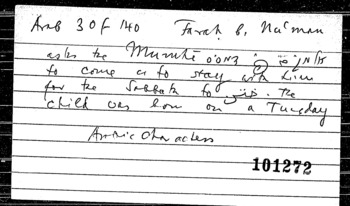 Arab 30f 140 Farah b. Nuʿman
asks the
to come a to stay with him
for the Sabbath to . The
child was born on a Tuesday
Arabic Characters
101272